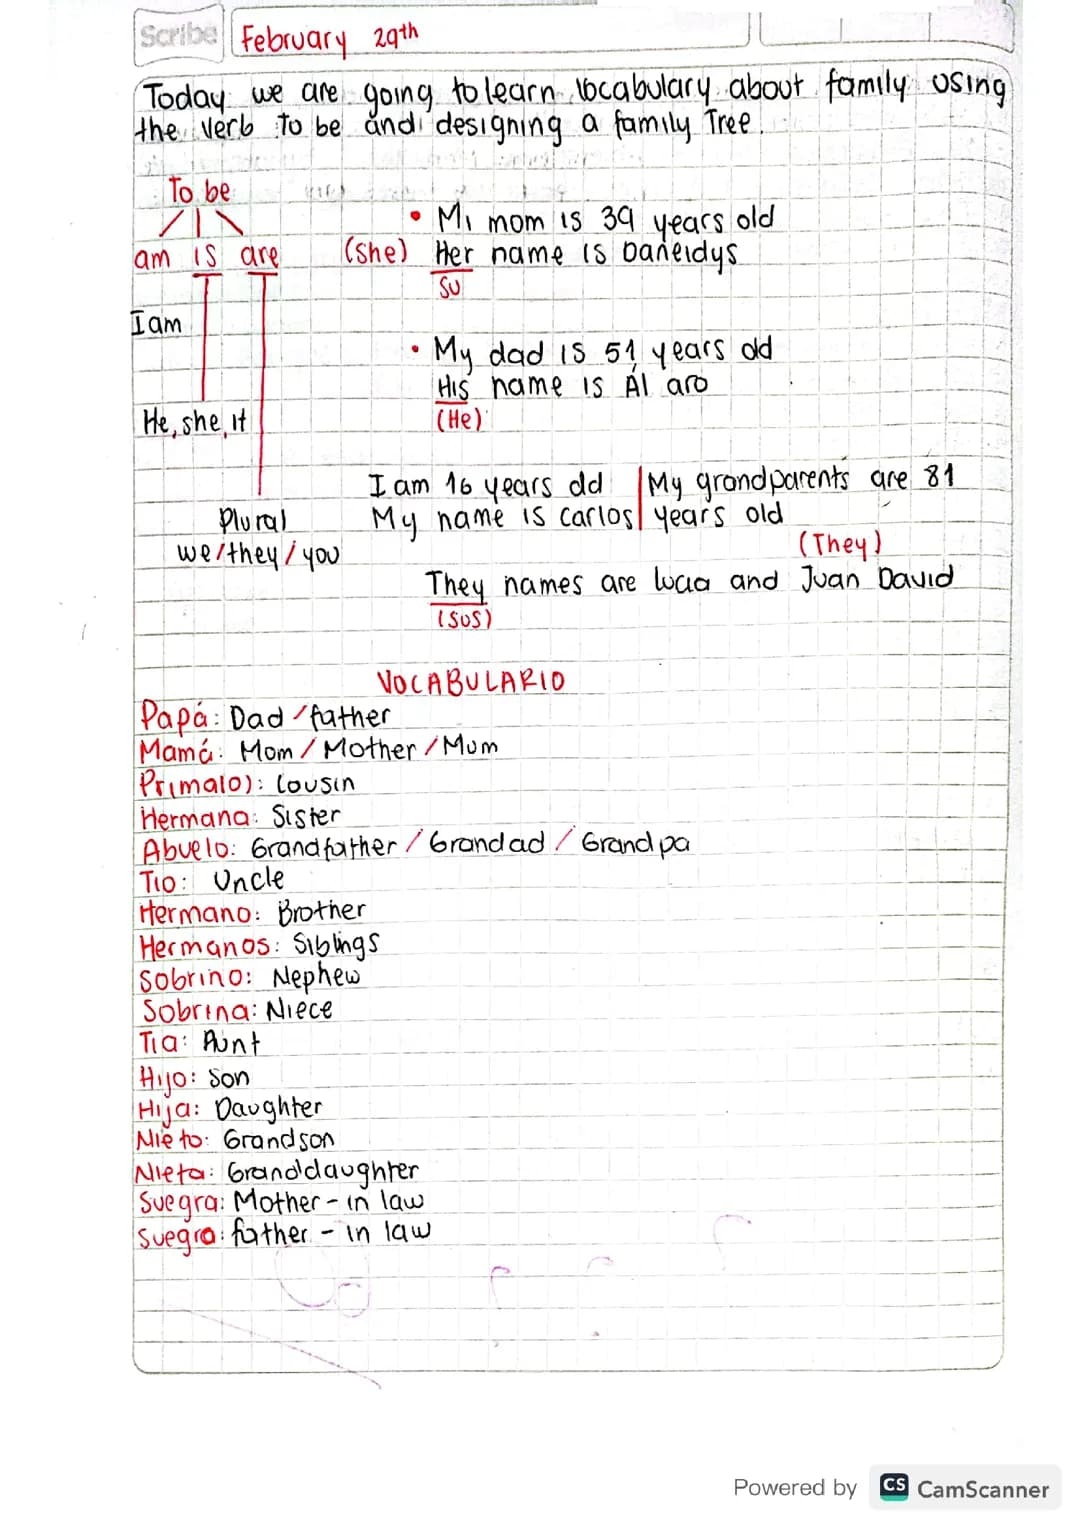 Scribe
February 29th
Today we are going to learn vocabulary about family using
the verb to be and designing a family Tree.
To be
am is are
I am
He, she, it
Plural
we/they/you
• Mi mom is 39 years old
(she) Her name is Daneidys
su
• My dad is 51 years old
His name is Ál aro
(He)
I am 16 years old
My name is Carlos
My grandparents are 81
years old
(They)
They names are Lucia and Juan David
(sus)
VOCABULARIO
Papá: Dad/father
Mamá: Mom/Mother/Mum
Prima(o): Cousin
Hermana: Sister
Abuelo: Grandfather/Grandad/Grandpa
Tio: Uncle
Hermano: Brother
Hermanos: Siblings
Sobrino: Nephew
Sobrina: Niece
Tia: Aunt
Hijo: Son
Hija: Daughter
Nieto: Grandson
Nieta: Granddaughter
Suegra: Mother-in law
Suegro: father-in law
Powered by CS CamScanner